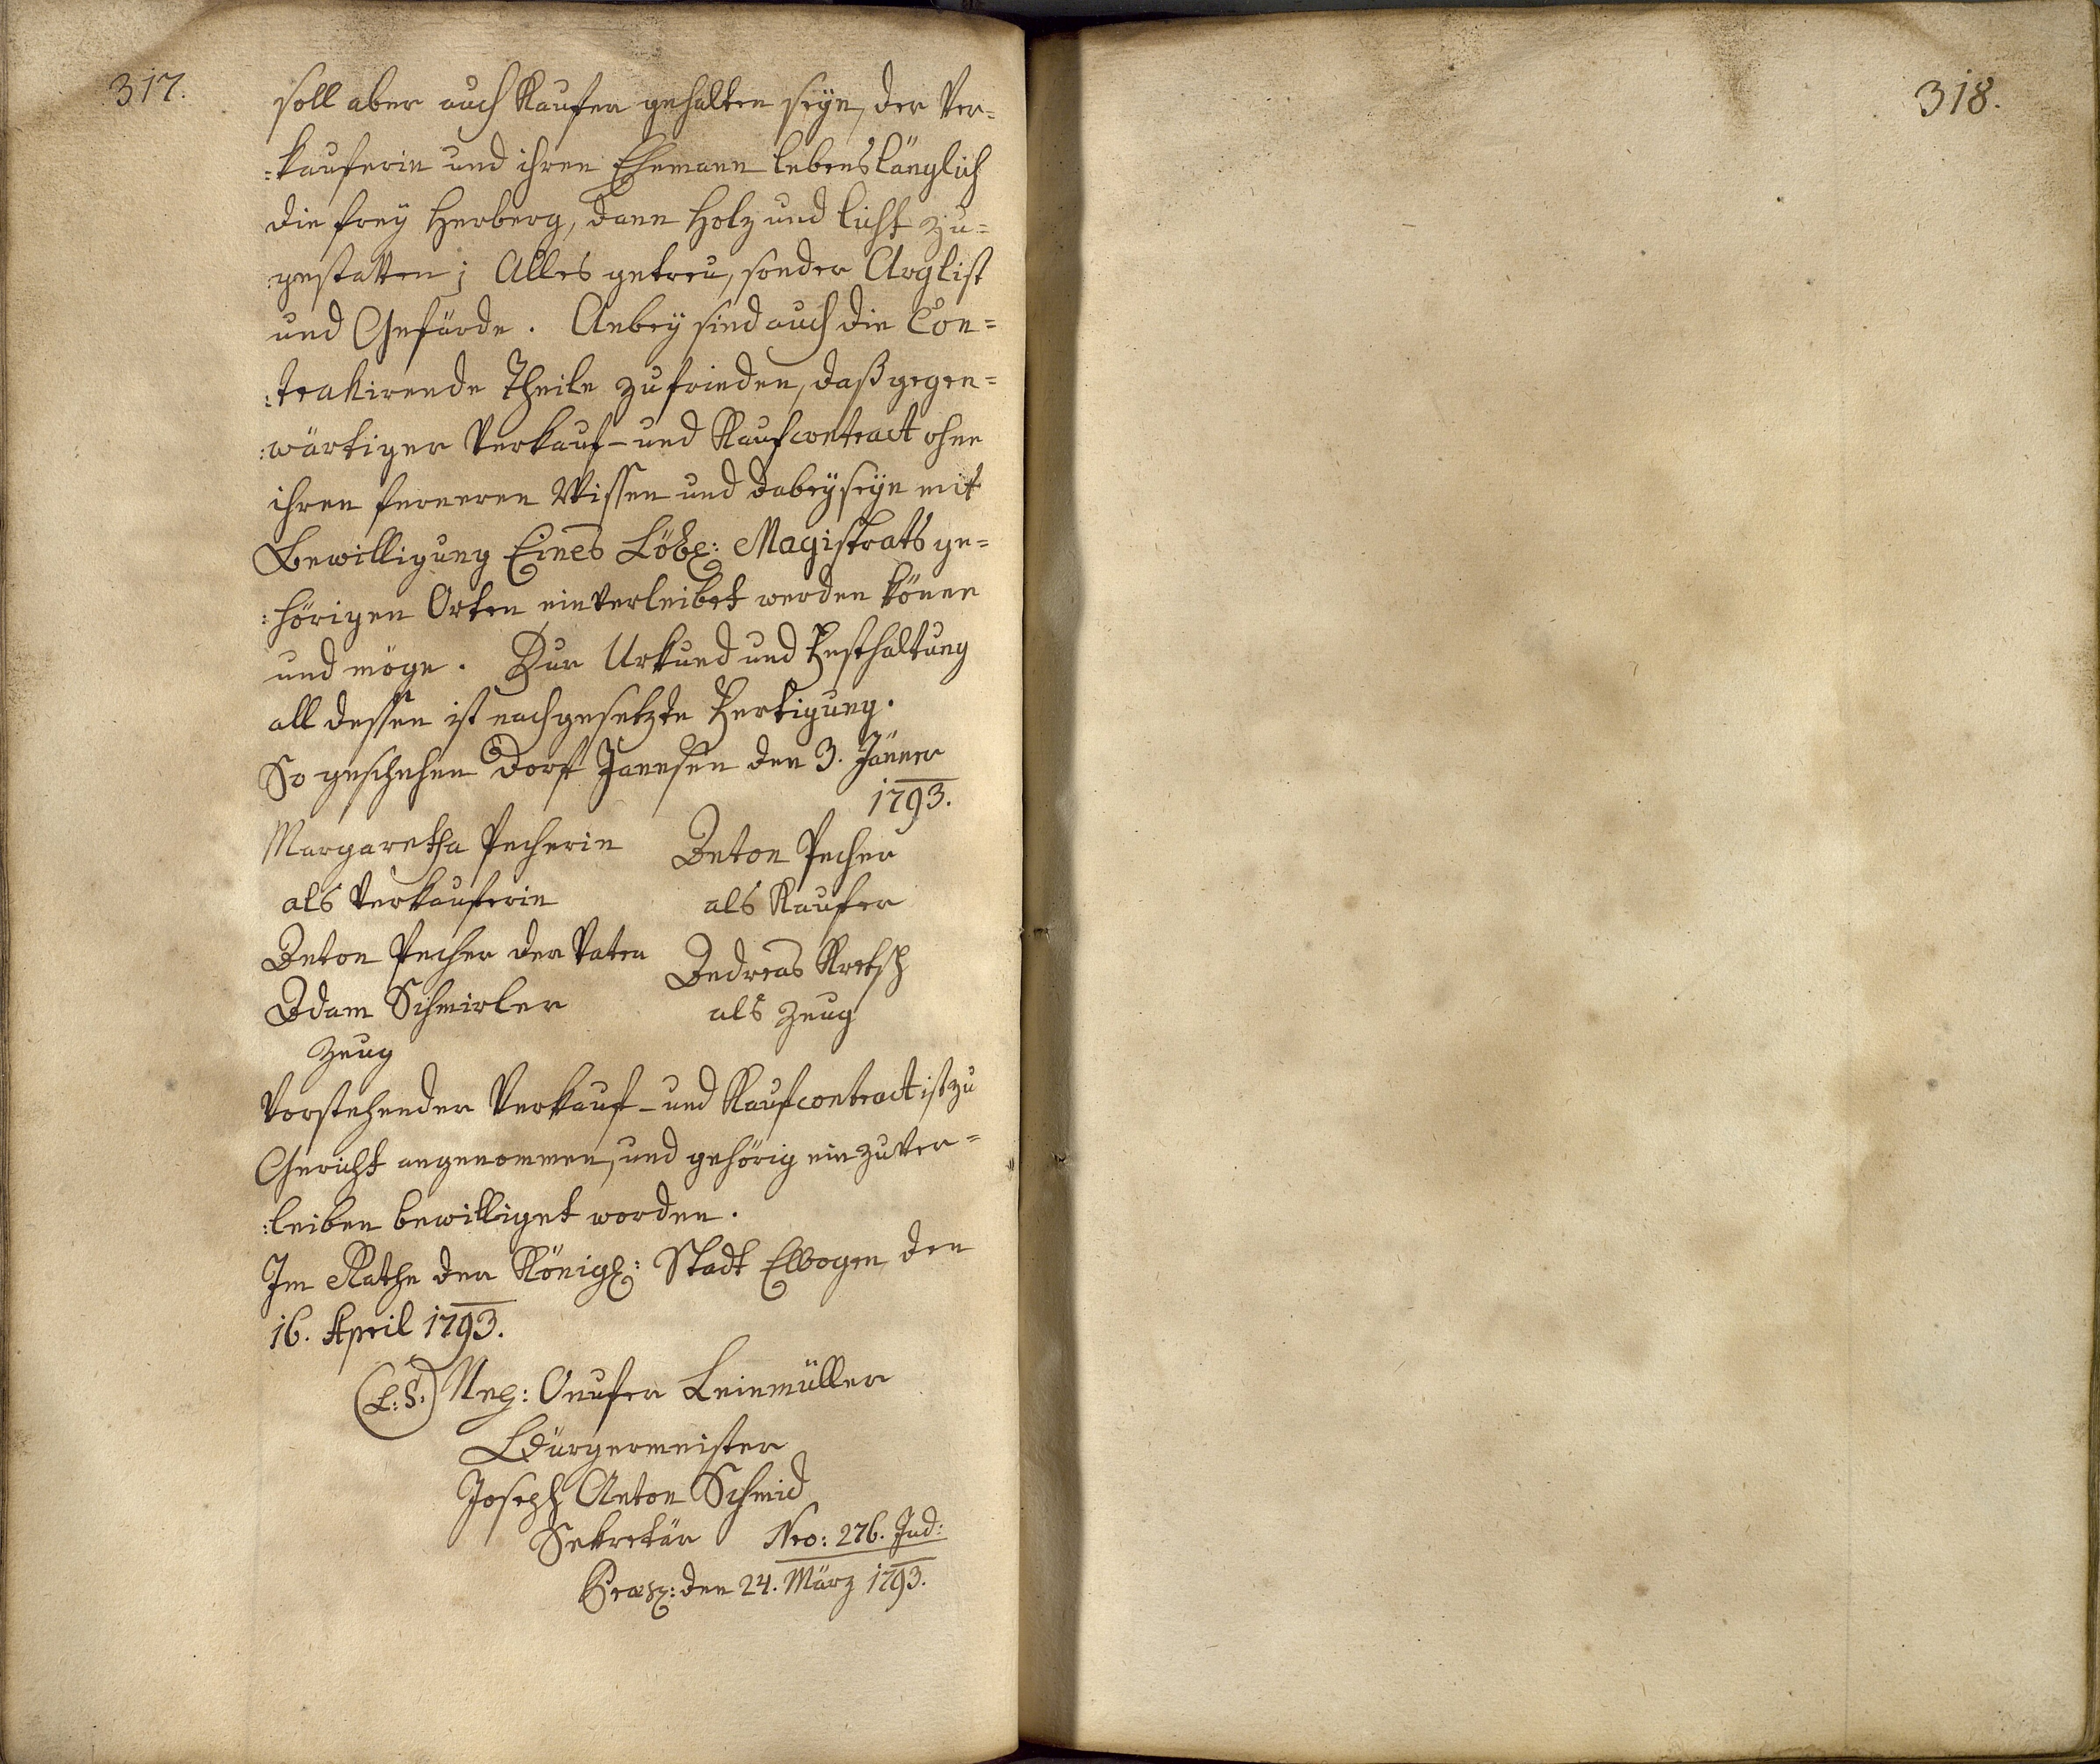 317.
soll aber auch Kaufer gehalten seÿn, der Ver=
:kauferin und ihren Ehemann lebenslänglich
die freÿ Herberg, dann Holz und licht zu=
:gestatten; Alles getreu, sonder Arglist
und Gefärde. Anbeÿ sind auch die Con=
:trakirende Theile zufrieden, daß gegen=
:wärtiger Verkauf- und Kaufcontract ohne
ihren ferneren Wissen und dabeÿseÿn mit
Bewilligung Eines Löbl: Magistrats ge=
:hörigen Orten einverleibet werden köñe
und möge. Zur Urkund und Festhaltung
all dessen ist nachgesetzte Fertigung.
So geschehen Dorf Janesen den 3. Jäner
1793.
Margaretha Pecherin
als Verkauferin
Anton Pecher
als Kaufer
Anton Pecher der Vater
Adam Schmirler
Zeug
Andreas Kretsch
als Zeug
Vorstehender Verkauf- und Kaufcontract ist zu
Gericht angenommen, und gehörig einzuver=
:leiben bewilliget worden.
Im Rathe der Königl: Stadt Elbogen den
16. April 1793.
(L:S:) Onufer Leinmüller
Bürgermeister
Joseph Anton Schmid
Sekretär Nro: 276. Jud:
Præs: den 24. März 1793.
318.